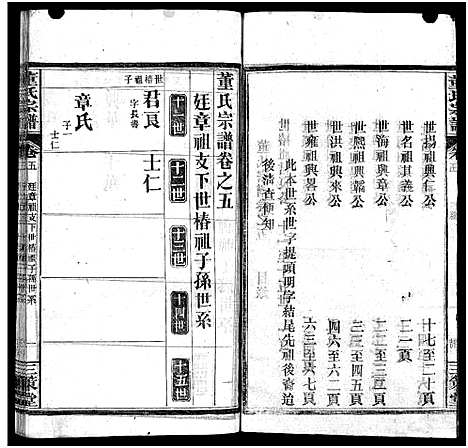 世揚祖興仁公 十七至二十頁
世名祖其義公 二一頁
世海祖興章公 二二至三三頁
世熙祖興長公 三四至四五頁
世洪祖興來公 四六至六二頁
世雍祖興畧公 六三至六七頁
此本世系世字提頭明字結尾先祖後裔迫
後清查便知
董氏宗譜
三策堂
董氏宗譜卷之五
廷章祖支下世椿祖子孫世系
十一世
十二世
十三世
十四世
十五世
世椿祖子
君良
字長書
士仁
章氏
子一
士仁
董氏宗譜
卷五
廷章祖支下世椿祖子孫世系
一
三策堂